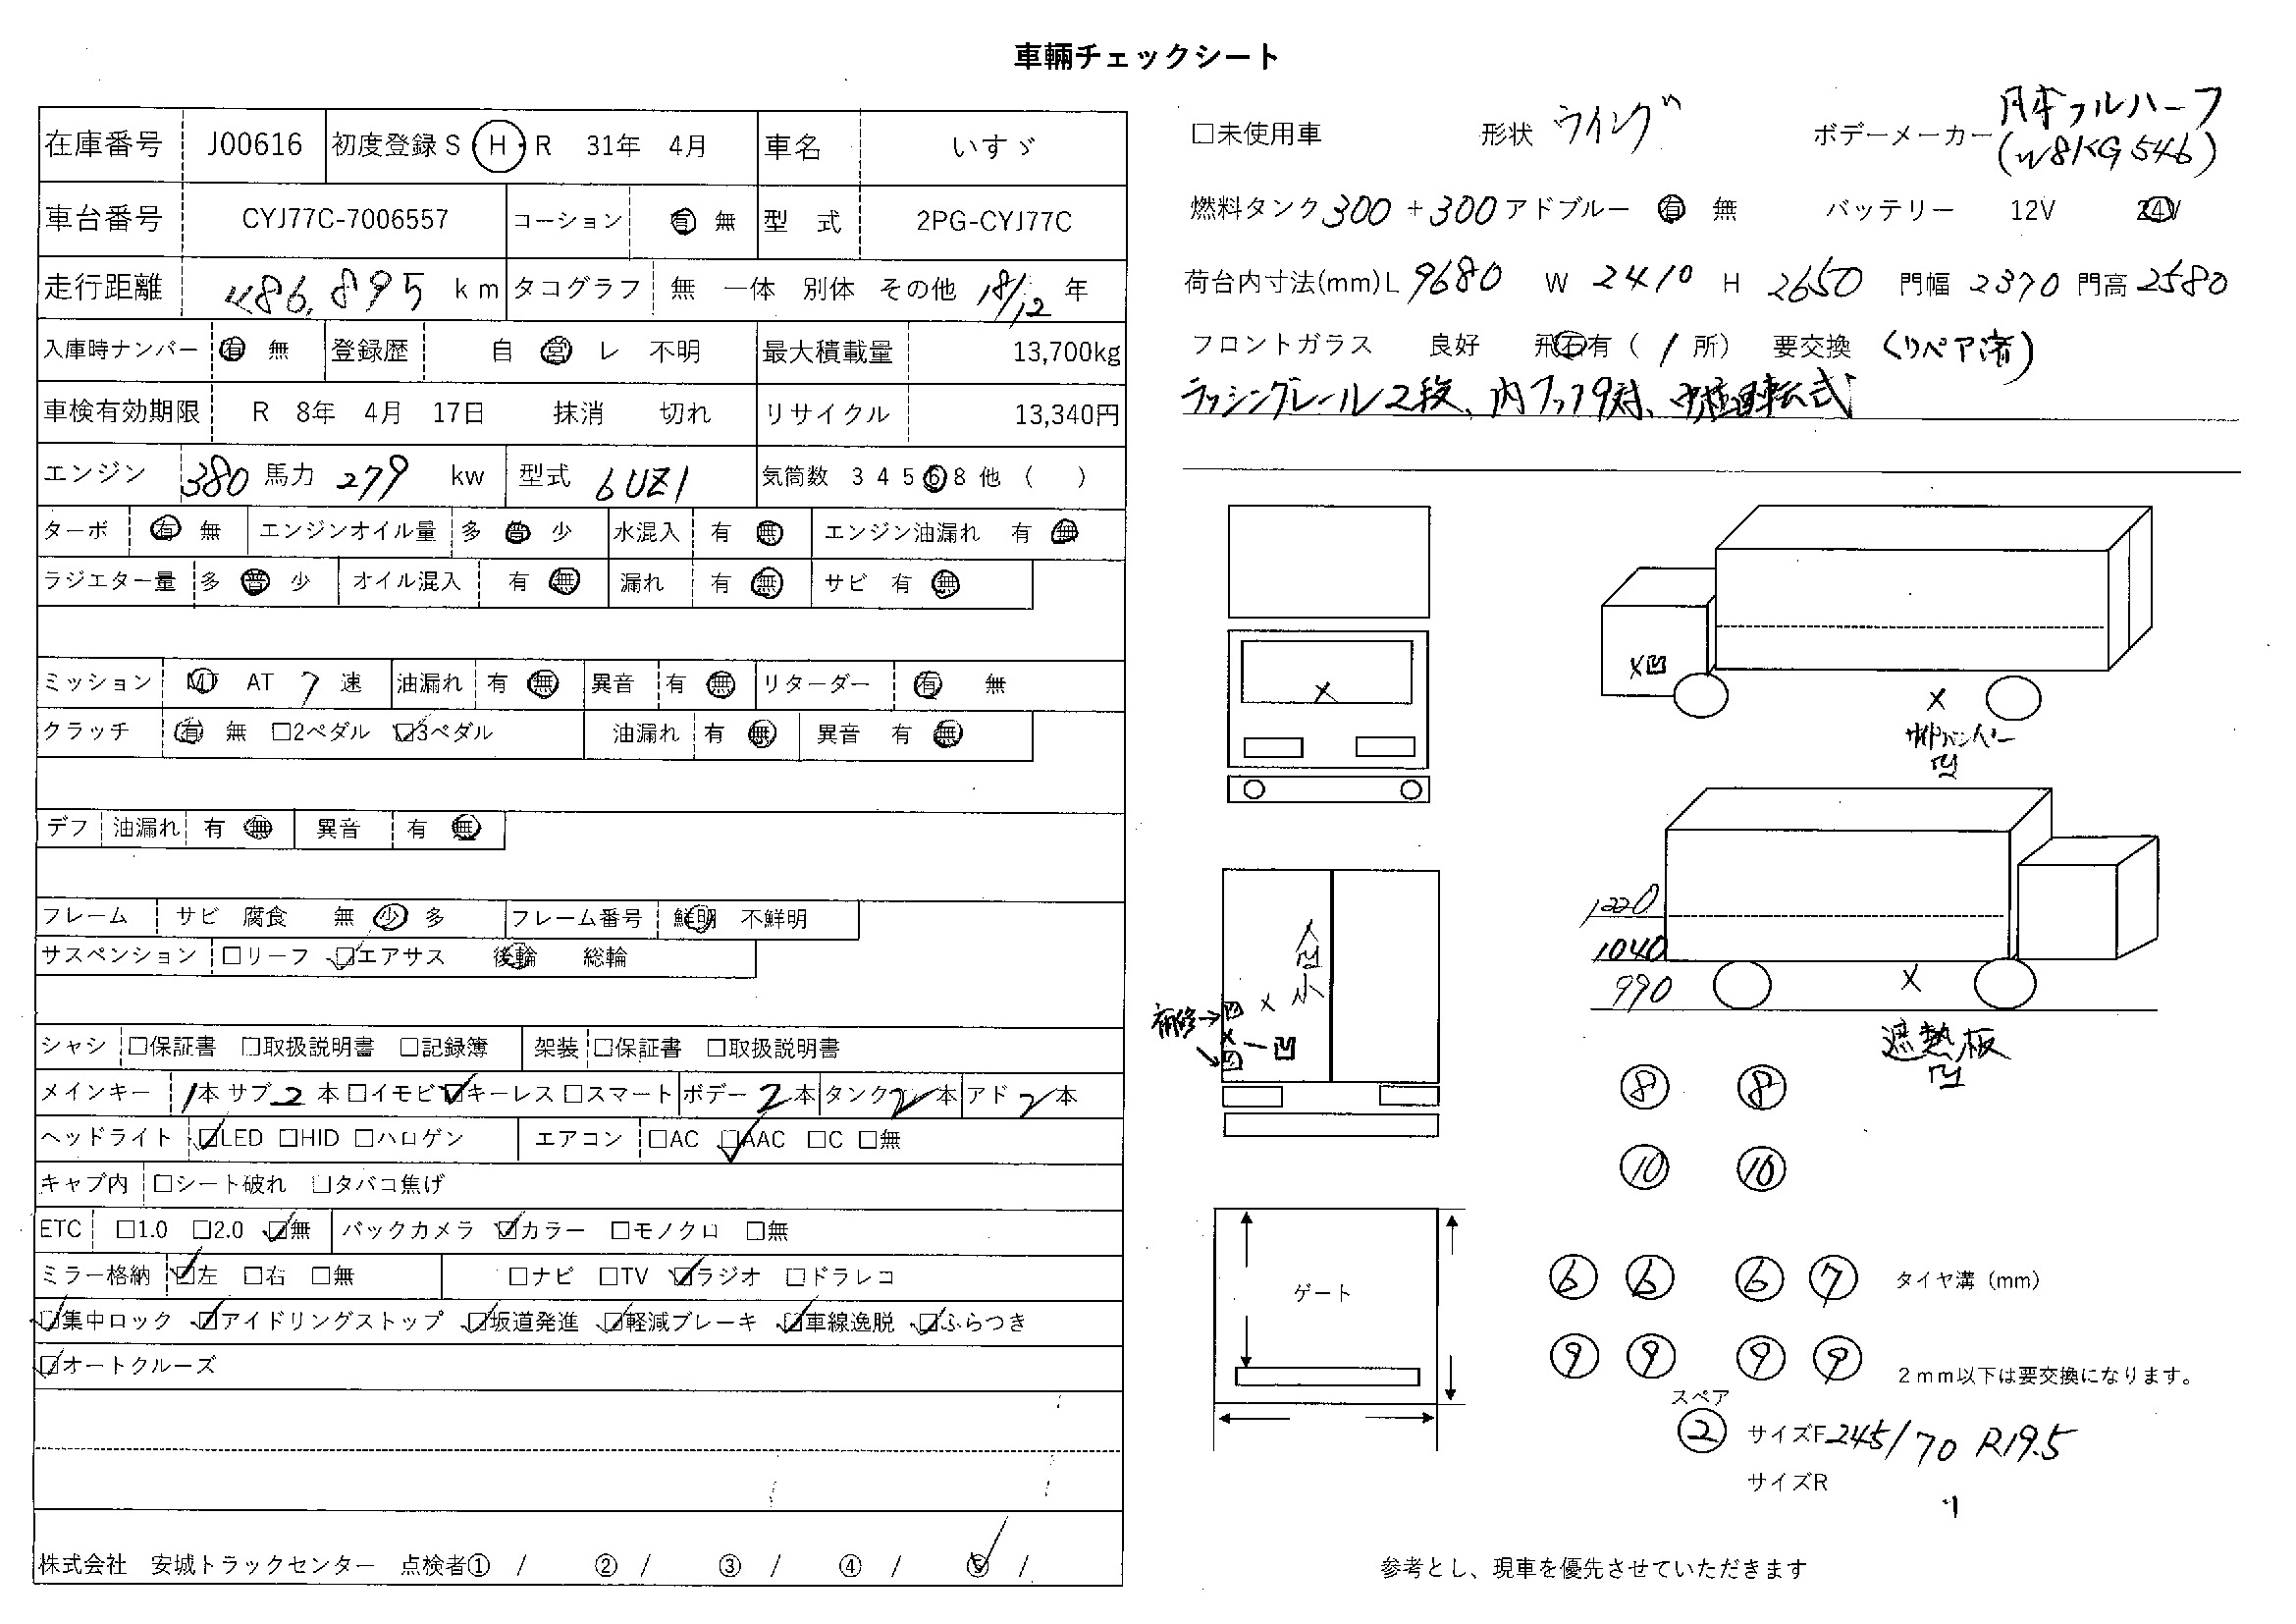 車輛チェックシート
在庫番号 J00616 初度登録 S・H・R 31年 4月 車名 いすゞ
車台番号 CYJ77C-7006557 コーション 有 無 型 式 2PG-CYJ77C
走行距離 486,895 km タコグラフ 無 一体 別体 その他 18/12 年
入庫時ナンバー 有 無 登録歴 自 営 レ 不明 最大積載量 13,700kg
車検有効期限 R 8年 4月 17日 抹消 切れ リサイクル 13,340円
エンジン 380 馬力 279 kw 型式 6UZ1 気筒数 3 4 5 6 8 他 ( )
ターボ 有 無 エンジンオイル量 多 普 少 水混入 有 無 エンジン油漏れ 有 無
ラジエター量 多 普 少 オイル混入 有 無 漏れ 有 無 サビ 有 無
ミッション MT AT 7 速 油漏れ 有 無 異音 有 無 リターダー 有 無
クラッチ 有 無 □2ペダル ☑3ペダル 油漏れ 有 無 異音 有 無
デフ 油漏れ 有 無 異音 有 無
フレーム サビ 腐食 無 少 多 フレーム番号 鮮明 不鮮明
サスペンション □リーフ ☑エアサス 後輪 総輪
シャシ □保証書 □取扱説明書 □記録簿 架装 □保証書 □取扱説明書
メインキー 1本 サブ 2 本 □イモビ ☑キーレス □スマート ボデー 2本 タンク 2本 アド 2本
ヘッドライト ☑LED □HID □ハロゲン エアコン □AC ☑AAC □C □無
キャブ内 □シート破れ □タバコ焦げ
ETC □1.0 □2.0 ☑無 バックカメラ ☑カラー □モノクロ □無
ミラー格納 ☑左 □右 □無 □ナビ □TV ☑ラジオ □ドラレコ
☑集中ロック ☑アイドリングストップ ☑坂道発進 ☑軽減ブレーキ ☑車線逸脱 ☑ふらつき
☑オートクルーズ
株式会社 安城トラックセンター 点検者① / ② / ③ / ④ / ⑤ /
□未使用車 形状 ウイング ボデーメーカー 日本フルハーフ
(W8KG546)
燃料タンク 300 + 300 アドブルー 有 無 バッテリー 12V 24V
荷台内寸法(mm) L 9680 W 2410 H 2650 門幅 2370 門高 2580
フロントガラス 良好 飛石有 ( 1 所) 要交換 (リペア済)
ラッシングレール2段、内フック9対、中柱回転式
X
X凹
X
サイドバンパー
凹
1220
1040
990
X
遮熱板
凹
凹
小
X
補修→
X ー 凹
⑧ ⑧
⑩ ⑩
⑥ ⑥ ⑥ ⑦ タイヤ溝 (mm)
⑨ ⑨ ⑨ ⑨ 2mm以下は要交換になります。
ゲート
スペア
② サイズF 245/70 R19.5
サイズR 〃
参考とし、現車を優先させていただきます